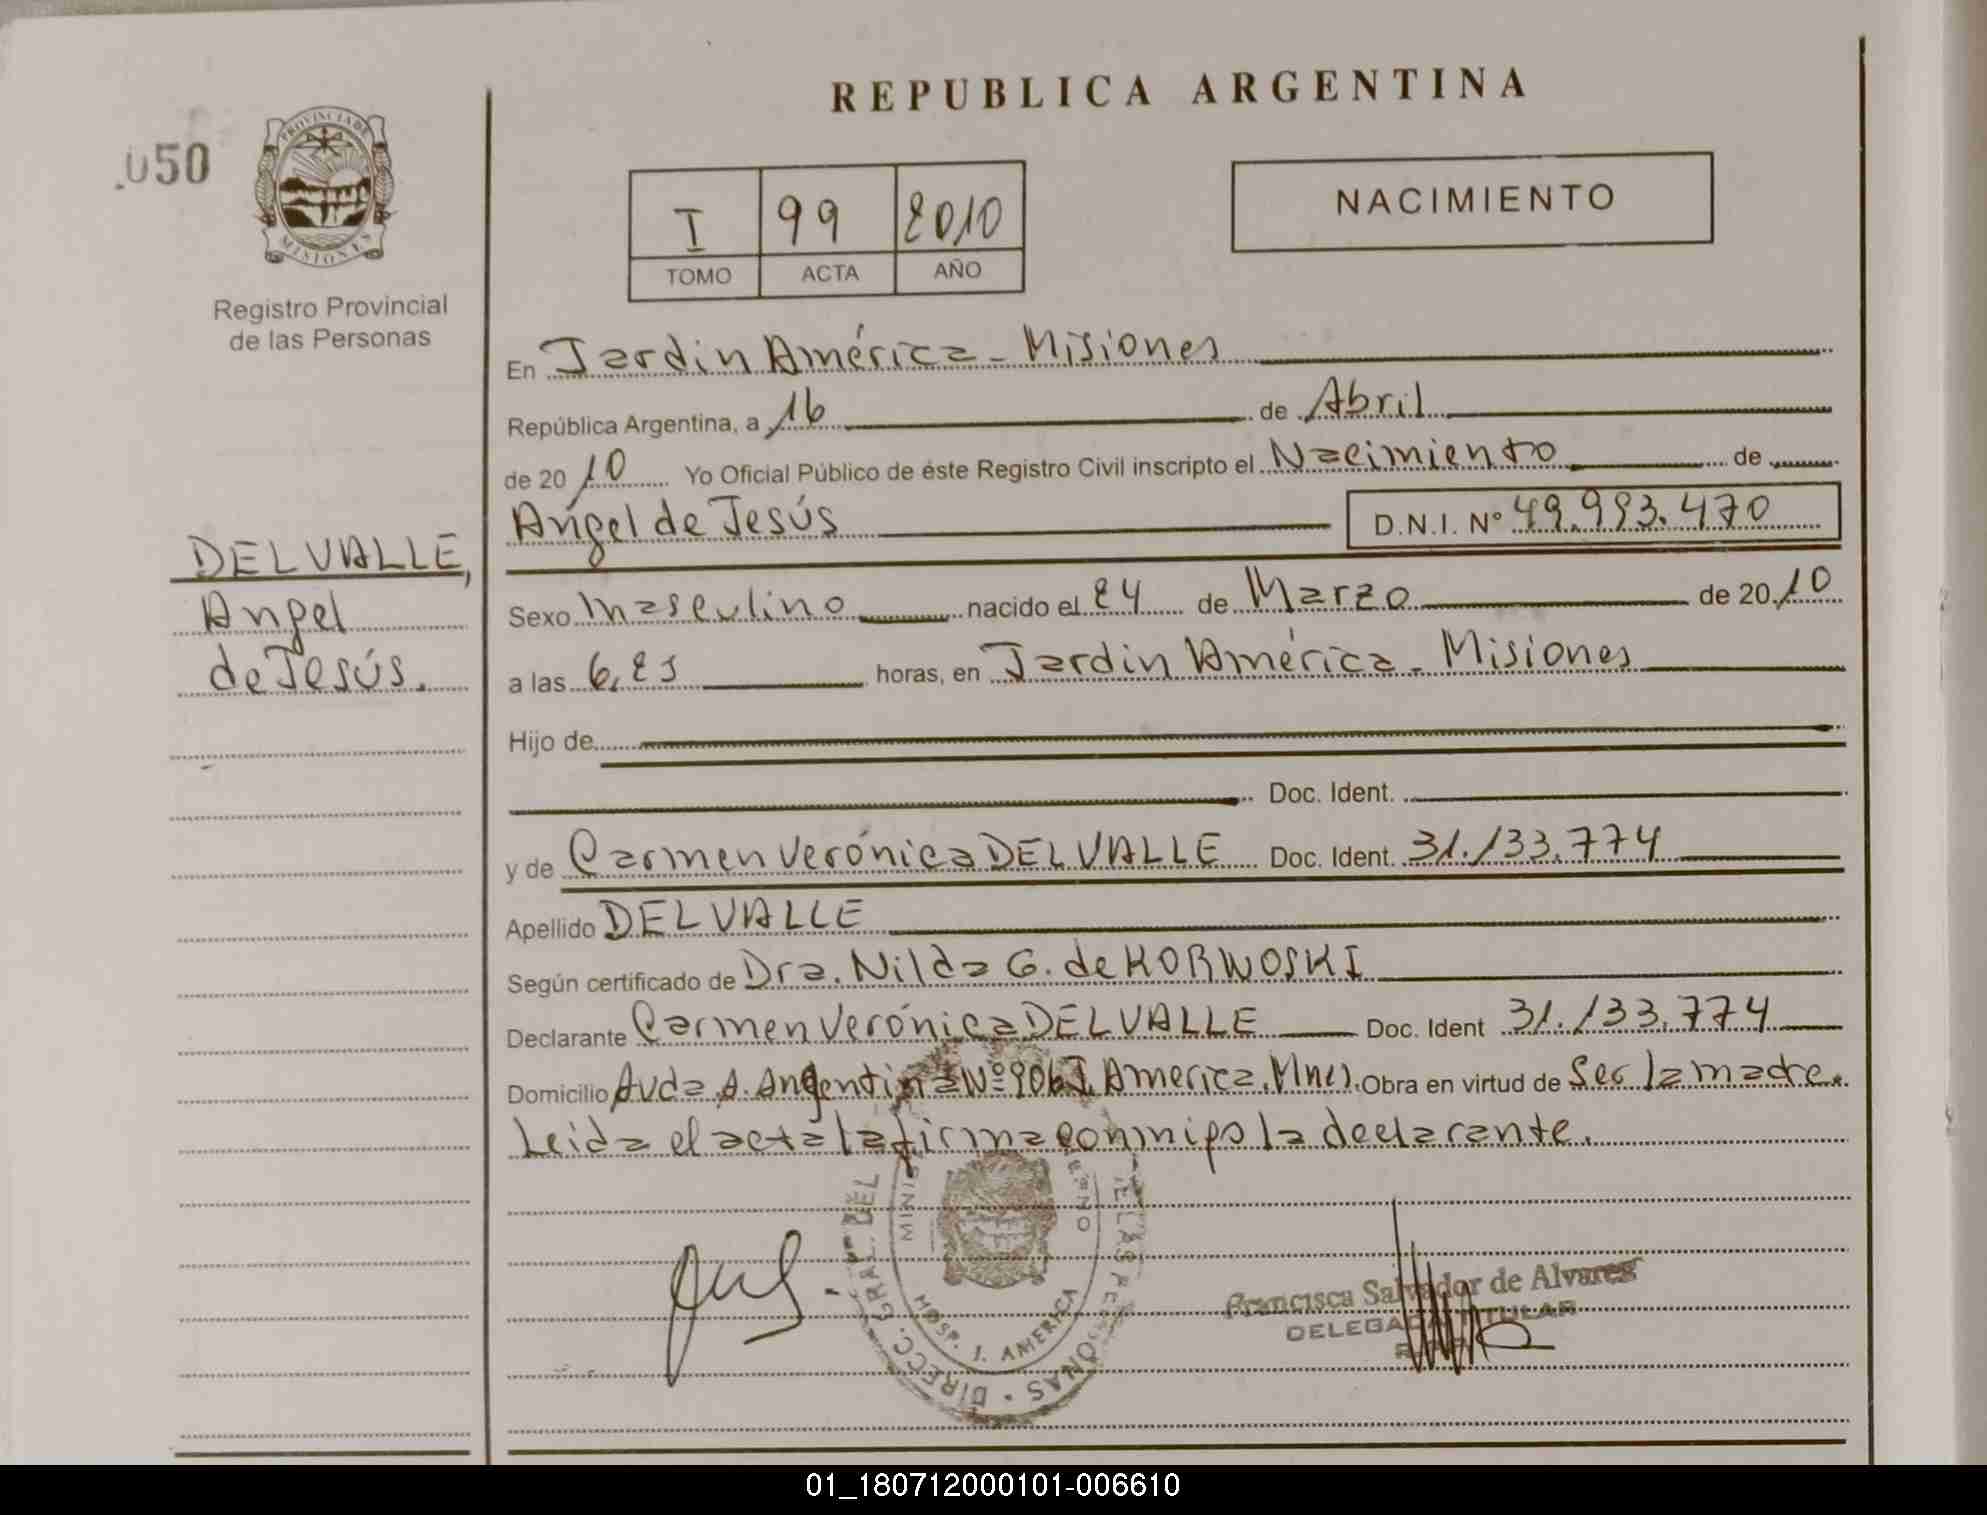 REPUBLICA ARGENTINA
050
PROVINCIA DE
MISIONES
Registro Provincial
de las Personas
I 99 2010
TOMO ACTA AÑO
NACIMIENTO
En Jardin América - Misiones
República Argentina, a 16 de Abril
de 20 10 Yo Oficial Público de éste Registro Civil inscripto el Nacimiento de
Angel de Jesús D.N.I. Nº 49.993.470
DELVALLE,
Angel
de Jesús.
Sexo Masculino nacido el 24 de Marzo de 20 10
a las 6,25 horas, en Jardin América - Misiones
Hijo de
Doc. Ident.
y de Carmen Verónica DELVALLE Doc. Ident. 31.133.774
Apellido DELVALLE
Según certificado de Dra. Nilda G. de KORWOSKI
Declarante Carmen Verónica DELVALLE Doc. Ident 31.133.774
Domicilio Avda. A. Argentina Nº 906 J. America. Mnes. Obra en virtud de Ser la madre.
Leida el acta la firma conmigo la declarante.
DIRECC. GRAL. DEL PERSONAS
HOSP. J. AMERICA
Francisca Salvador de Alvarez
DELEGADA TITULAR
01_180712000101-006610